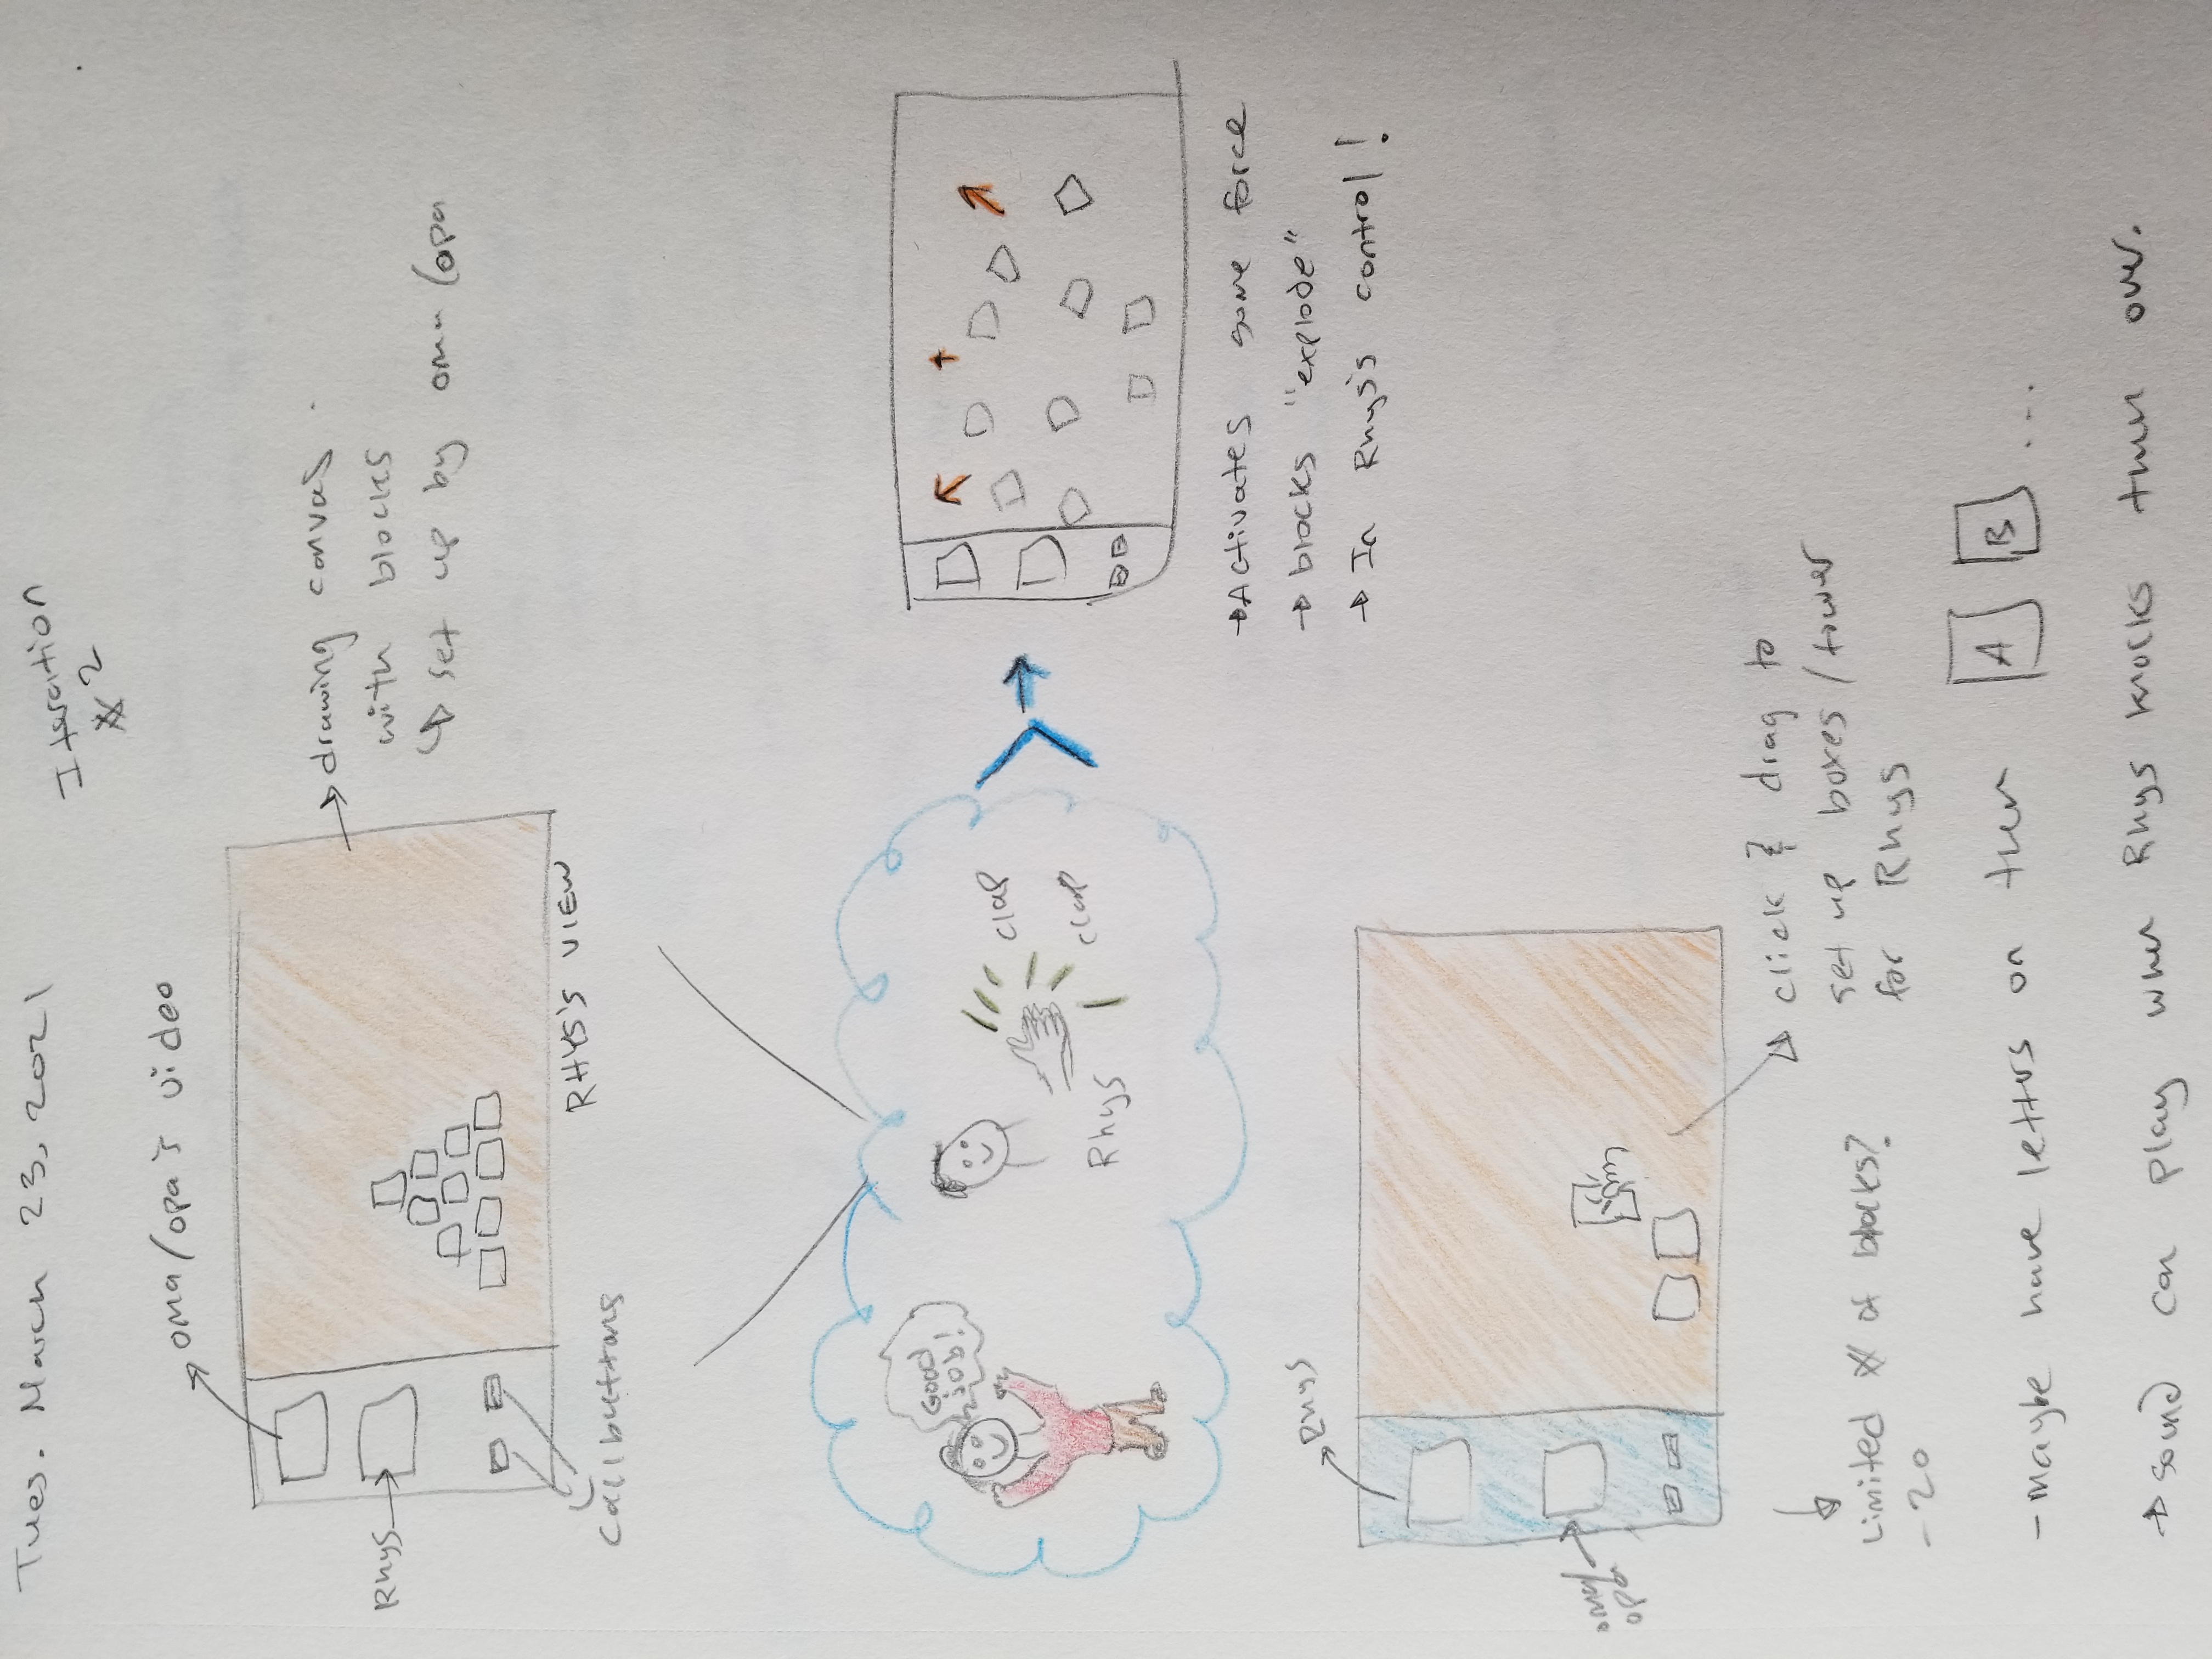 Tues. March 23, 2021
Iteration
# 2
oma/opa's video
→ drawing canvas.
with blocks
↳ set up by oma/opa
Rhys
RHYS'S VIEW
call buttons
Good
job!
Rhys
clap
clap
→ Activates some force
→ blocks "explode"
→ In Rhys's control!
Rhys
oma/
opa
→ click & drag to
set up boxes/tower
for Rhys
Limited # of blocks?
- 20
- maybe have letters on them A B ...
→ sound can play when Rhys knocks them over.